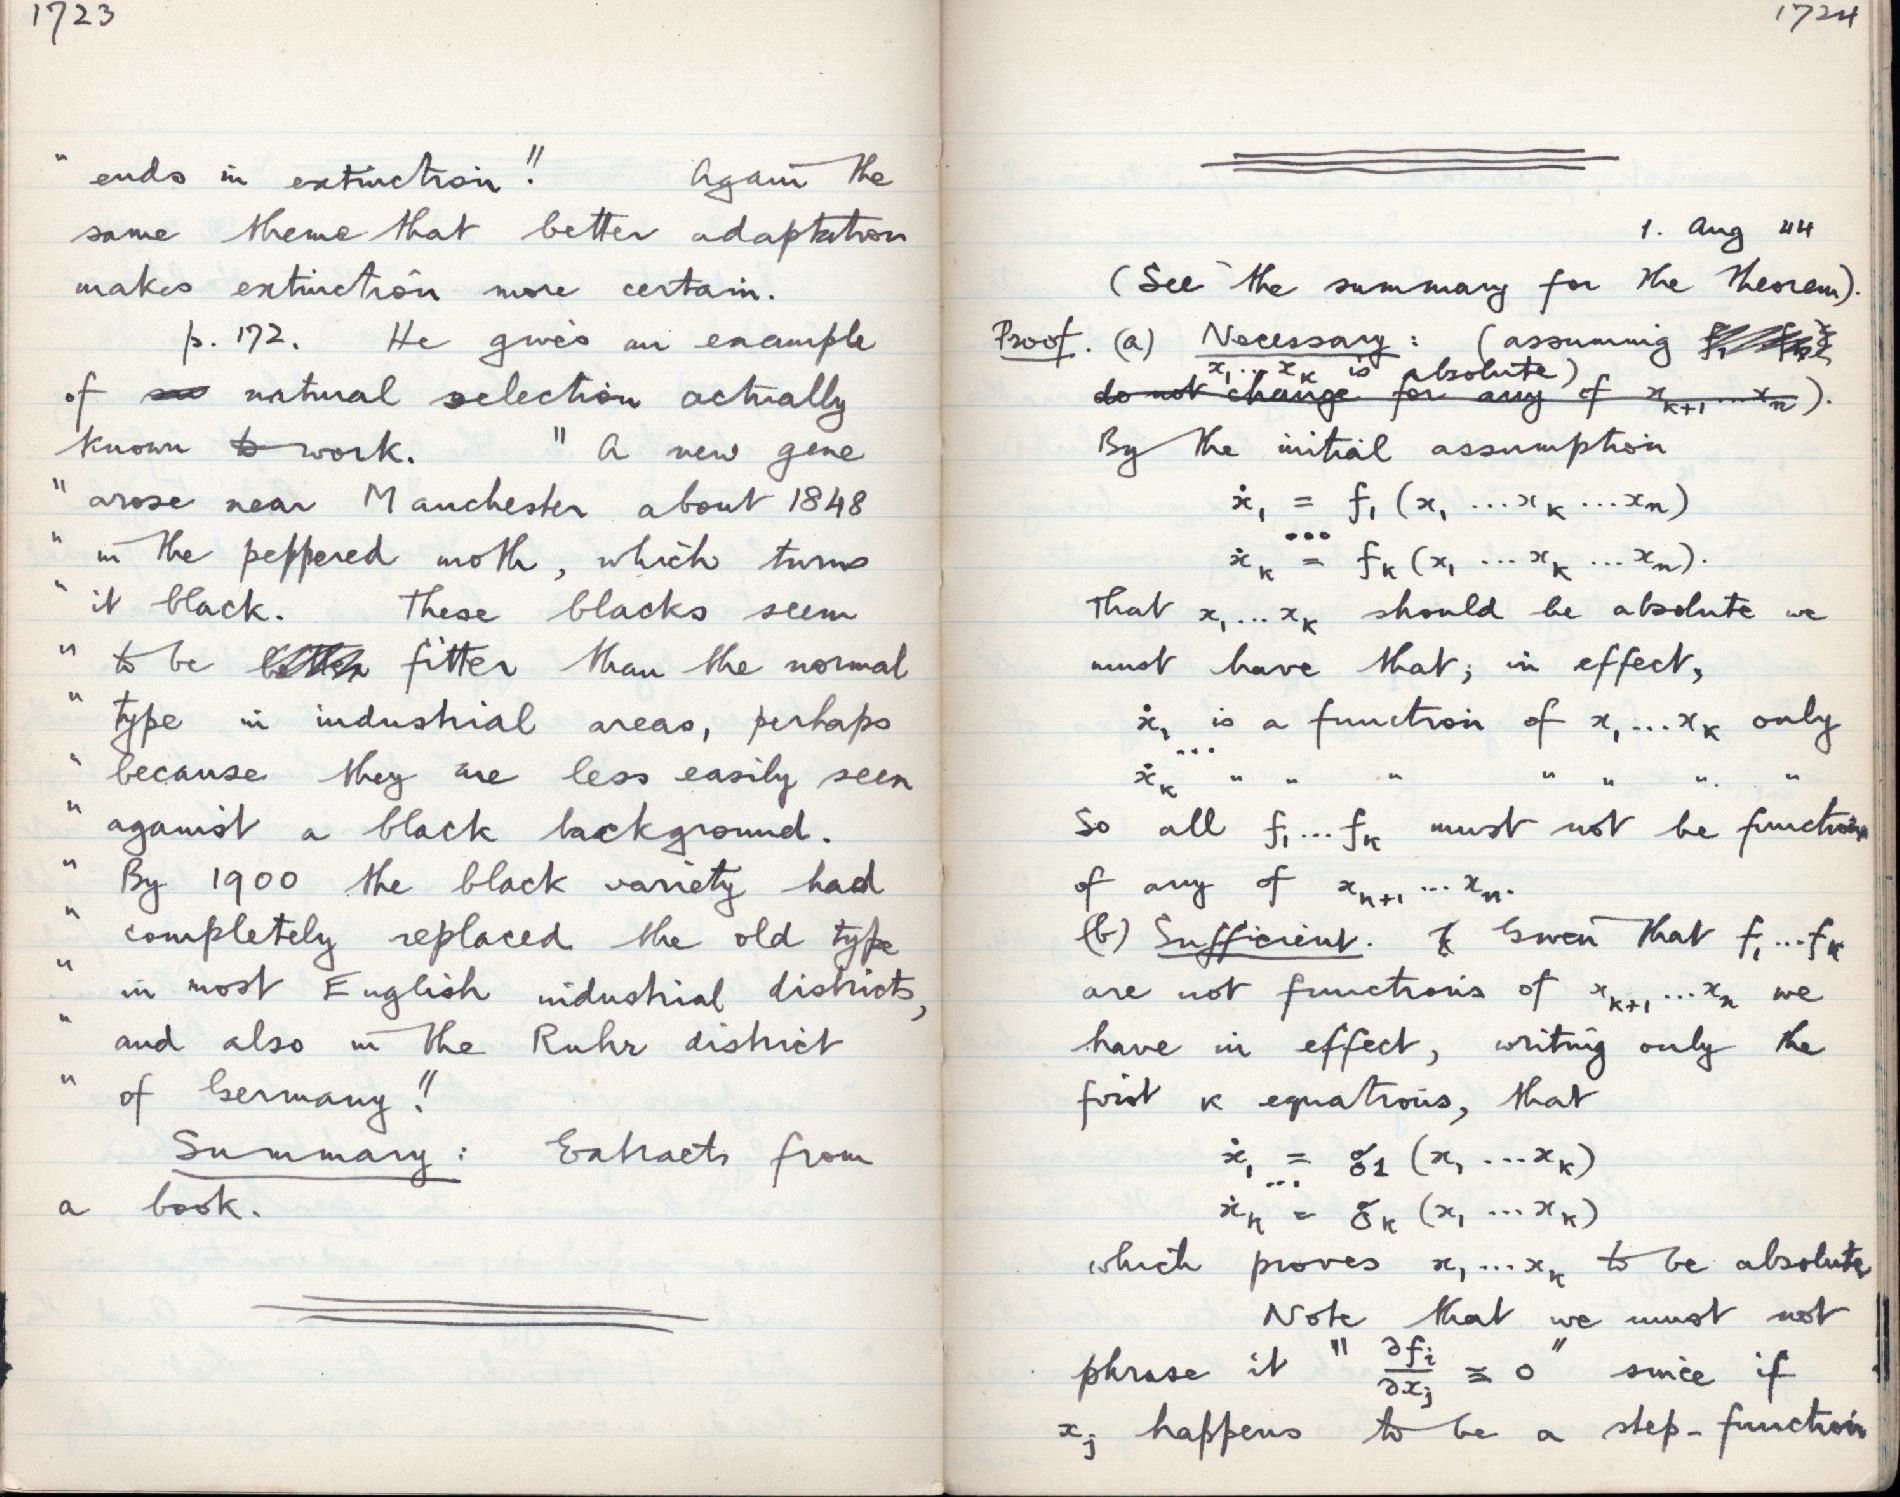 1723
" ends in extinction".   Again the
same theme that better adaptation
makes extinction more certain.
p. 172.   He gives an example
of natural selection actually
known to work.   " A new gene
" arose near Manchester about 1848
" in the peppered moth, which turns
" it black.   These blacks seem
" to be better fitter than the normal
" type in industrial areas, perhaps
" because they are less easily seen
" against a black background.
" By 1900 the black variety had
" completely replaced the old type
" in most English industrial districts,
" and also in the Ruhr district
" of Germany".
Summary:   Extracts from
a book.
1724
1. Aug 44
(See the summary for the theorem).
Proof. (a) Necessary: (assuming
x₁...xₖ is absolute)
do not change for any of xₖ₊₁...xₙ).
By the initial assumption
ẋ₁ = f₁(x₁ ...xₖ ...xₙ)
...
ẋₖ = fₖ(x₁ ...xₖ ...xₙ).
That x₁...xₖ should be absolute we
must have that; in effect,
ẋ₁ is a function of x₁...xₖ only
...
ẋₖ " " " " " " "
So all f₁...fₖ must not be functions
of any of xₙ₊₁...xₙ.
(b) Sufficient. Given that f₁...fₖ
are not functions of xₖ₊₁...xₙ we
have in effect, writing only the
first k equations, that
ẋ₁ = g₁(x₁ ...xₖ)
...
ẋₖ = gₖ(x₁ ...xₖ)
which proves x₁...xₖ to be absolute
Note that we must not
phrase it " ∂fᵢ/∂xⱼ ≡ 0 " since if
xⱼ happens to be a step-function